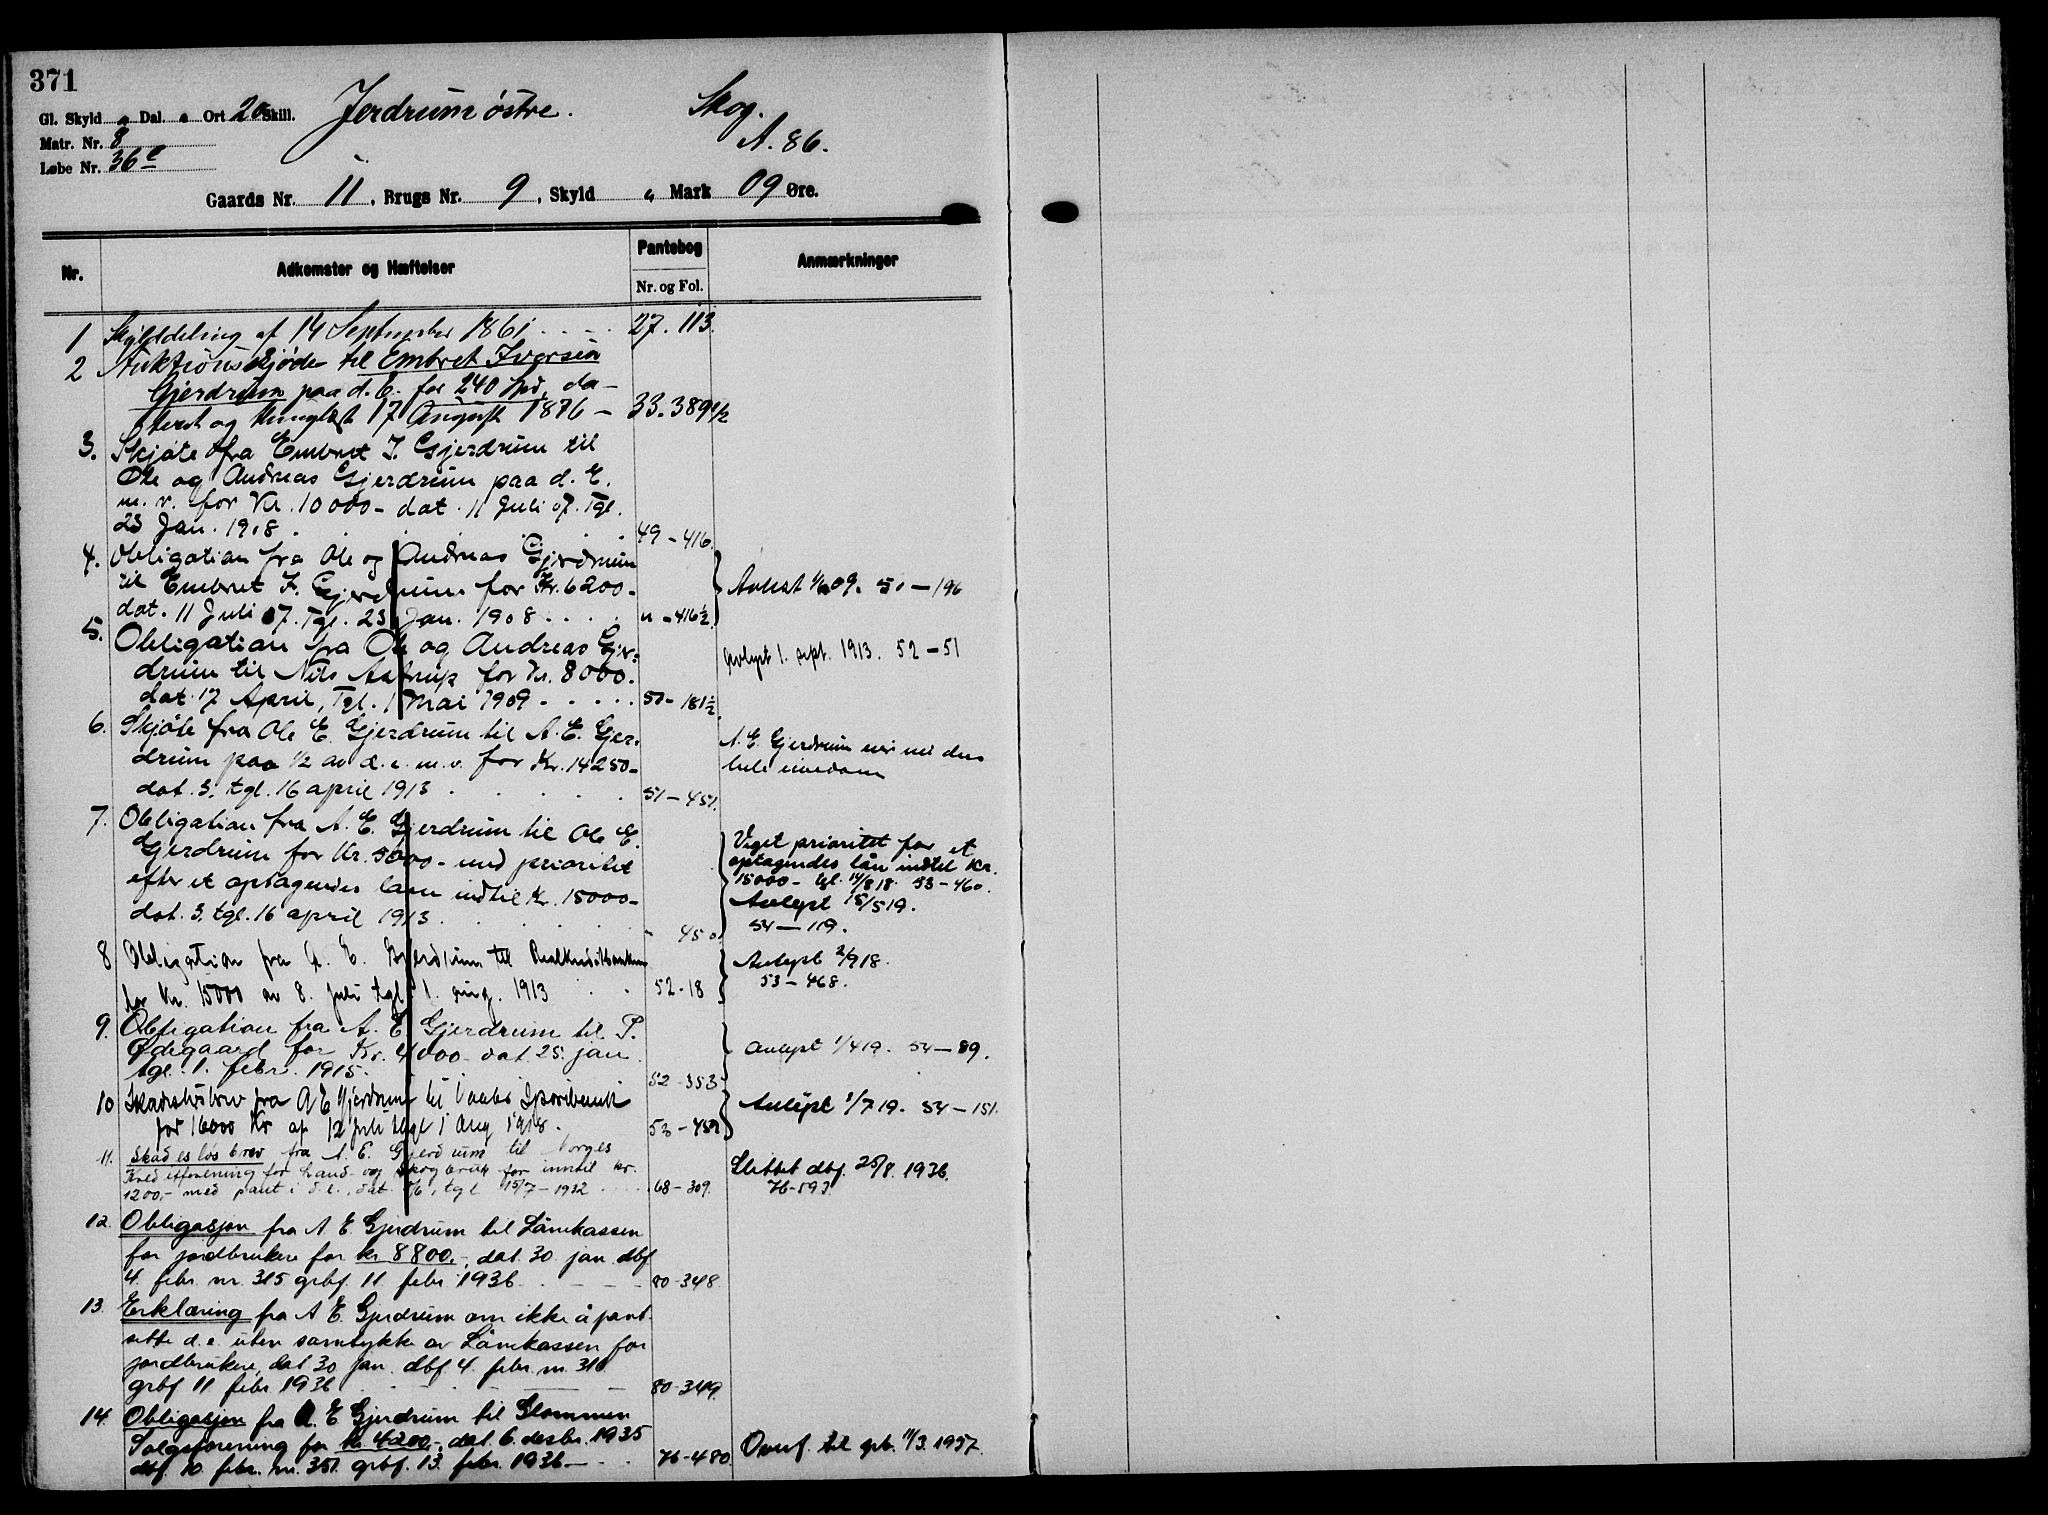 371
Gl. Skyld " Dal. " Ort 20 Skill. Jerdrum østre. Skog.
Matr. Nr. 8 A. 86.
Løbe Nr. 36c
Gaards Nr. 11, Brugs Nr. 9, Skyld " Mark 09 Øre.
Nr. Adkomster og Hæftelser Pantebog Anmærkninger
Nr. og Fol.
1 Skylddeling af 14 September 1861 . . . . 27. 113.
2 Auktionsskjøde til Embret Iversen
Gjerdrum paa d. E. for 240 Spd, da-
teret og thinglæst 17 August 1876 - 33. 389 1/2
3. Skjøte fra Embret I. Gjerdrum til
Ole og Andreas Gjerdrum paa d. E.
m. v. for Kr. 10000- dat. 11 Juli 07. Tgl.
23 Jan. 1908 . . . . 49 - 416.
4. Obligation fra Ole og Andreas Gjerdrum
til Embret I. Gjerdrum for Kr. 6200- Avlest 1/6 09. 50 - 196
dat. 11 Juli 07. Tgl. 23 Jan. 1908 . . . . " - 416 1/2
5. Obligation fra Ole og Andreas Gjer-
drum til Nils Aastrup for Kr. 8000. Avlyst 1. sept. 1913. 52 - 51
dat. 17 April, Tgl. 1 Mai 1909 - . . . . 50 - 181 1/2
6. Skjøte fra Ole E. Gjerdrum til A. E. Gjer-
drum paa 1/2 av d. e. m. v. for Kr. 14250- A. E. Gjerdrum eier nu den
dat. 3. tgl. 16 april 1913 . . . . 51 - 451. hele eiendom
7. Obligation fra A. E. Gjerdrum til Ole E.
Gjerdrum for Kr. 5000- med prioritet Veget prioritet for et
efter et optagendes laan indtil Kr. 15000- optagendes lån indtil Kr.
dat. 3. tgl. 16 april 1913 . . . . " 450. 15000- tgl. 14/8 18. 53 - 460.
Avlyst 15/5 19.
54 - 119.
8 Obligation fra A. E. Gjerdrum til Realkreditbanken Avlyst 2/9 18.
for Kr. 15000 av 8. juli tgl. 1. aug. 1913 . . 52 - 18 53 - 468.
9. Obligation fra A. E. Gjerdrum til P.
Ødegaard for Kr. 4000- dat. 25. jan Avlyst 1/4 19. 54 - 89.
tgl. 1. febr. 1915. 52 - 353
10 Skadesløsbrev fra A E Gjerdrum til Vaaler Sparebank Avlyst 1/7 19. 54 - 151.
for 16000 Kr af 12 juli tgl 1 Aug 1918. 53 - 459
11. Skadesløsbrev fra A. E. Gjerdrum til Norges
Kreditforening for Land- og Skogbruk for inntil kr. Slettet dbf. 25/8. 1936.
1200,- med pant i d. e., dat. /6, tgl 15/7 - 1932 . . . . 68 - 309. 76-593.
12. Obligasjon fra A E Gjerdrum til Lånekassen
for jordbrukere for kr 8800,-, dat. 30. jan. dbf
4. febr. nr. 315 grbf. 11 febr 1936. . - - - 80 - 348.
13. Erklæring fra A E Gjerdrum om ikke å pant-
sette d. e. uten samtykke av Lånekassen for
jordbrukere, dat 30 jan. dbf. 4. febr. nr. 316
grbf 11 febr 1936 . - - - 80 - 349.
14. Obligasjon fra A. E Gjerdrum til Glommen
Salgsforening for kr 4200,-, dat. 6. desbr. 1935
dbf. 10. febr. nr. 351. grbf. 13. febr. 1936 - . . 76 - 480 Overf. til grb. 11/3. 1957.